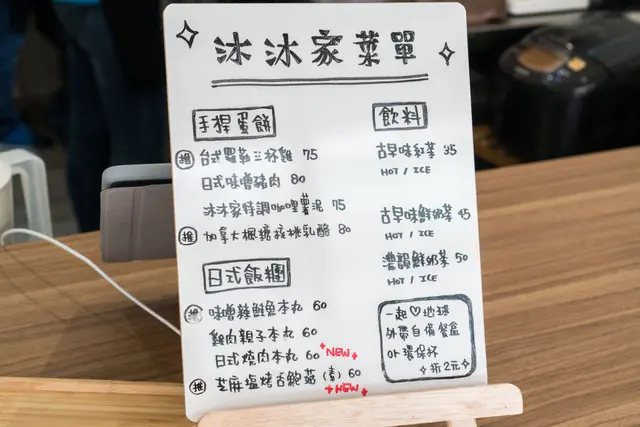 沐沐家菜單
手捏蛋餅
推 台式羅勒三杯雞 75
日式味噌豬肉 80
沐沐家特調咖哩薯泥 75
推 加拿大楓糖核桃乳酪 80
日式飯糰
推 味噌辣鮭魚本丸 60
雞肉親子本丸 60
日式燒肉本丸 60 NEW
推 芝麻塩烤杏鮑菇(素) 60
NEW
飲料
古早味紅茶 35
HOT / ICE
古早味鮮奶茶 45
HOT / ICE
濃韻鮮奶茶 50
HOT / ICE
一起♡地球
外帶自備餐盒
or 環保杯
折2元